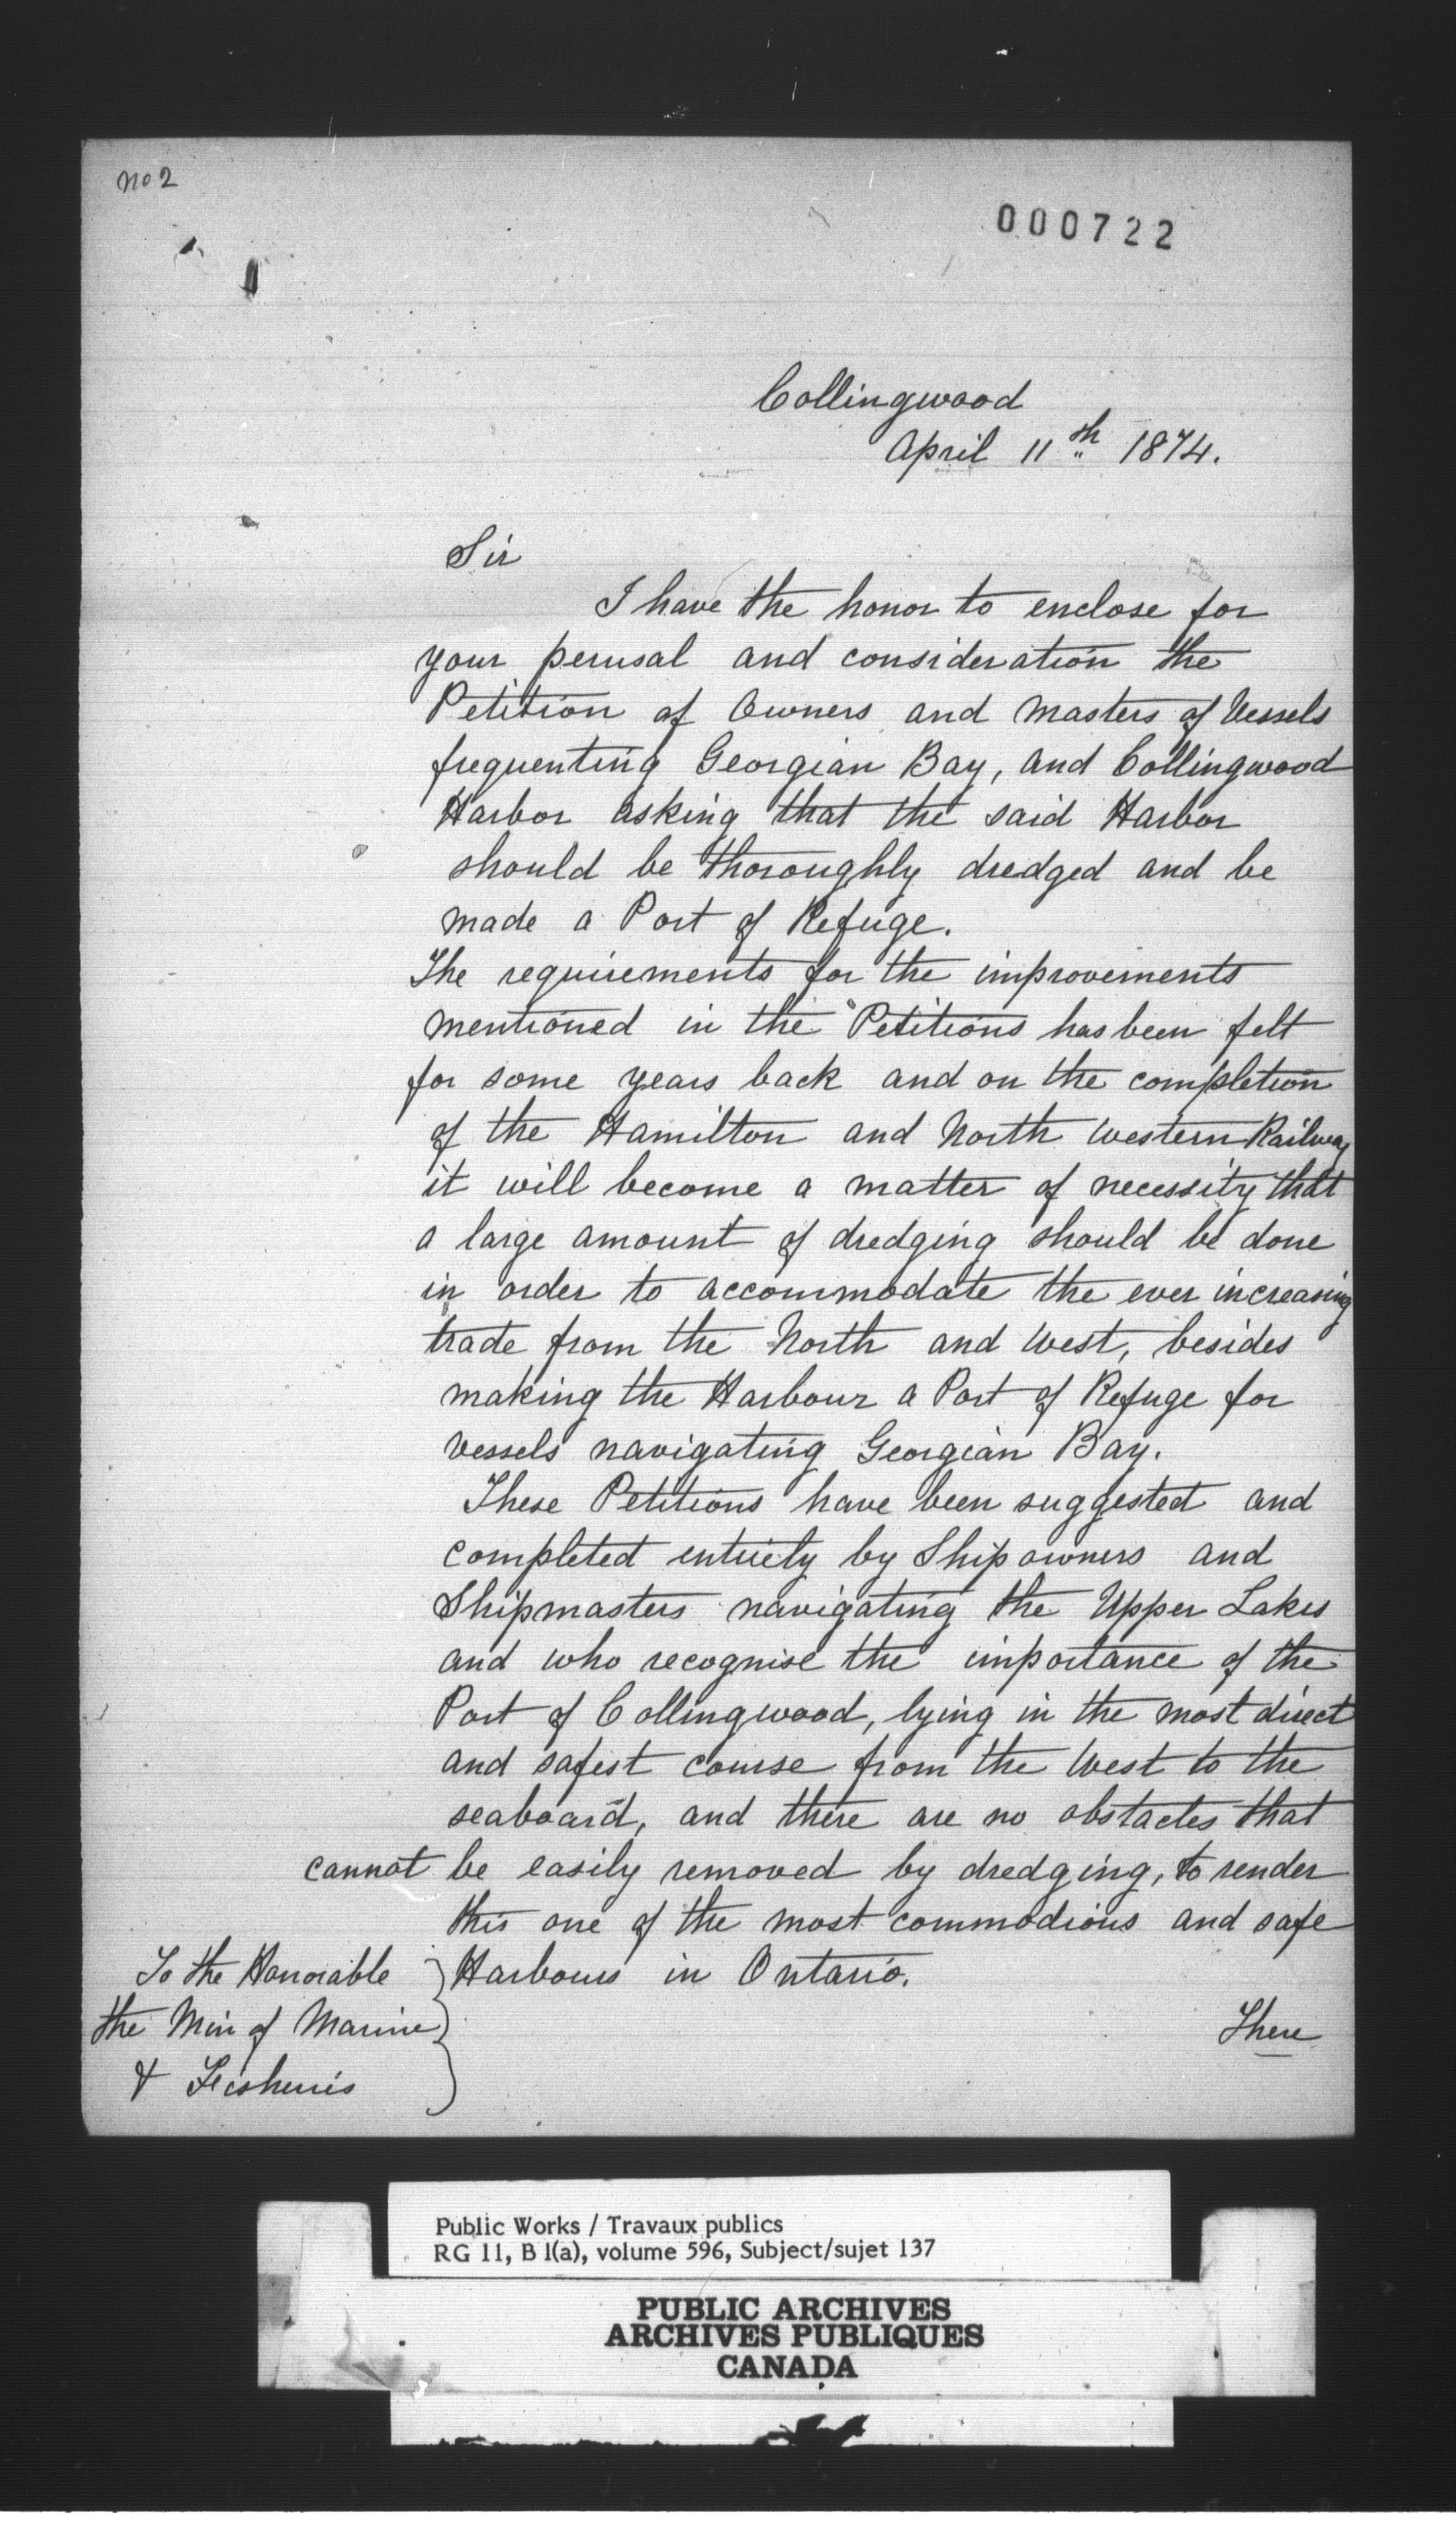 No 2
000722
Collingwood
April 11th 1874.
Sir
I have the honor to enclose for
your perusal and consideration the
Petition of Owners and Masters of Vessels
frequenting Georgian Bay, and Collingwood
Harbor asking that the said Harbor
should be thoroughly dredged and be
made a Port of Refuge.
The requirements for the improvements
mentioned in the Petitions has been felt
for some years back and on the completion
of the Hamilton and North Western Railway
it will become a matter of necessity that
a large amount of dredging should be done
in order to accommodate the ever increasing
trade from the North and West, besides
making the Harbour a Port of Refuge for
vessels navigating Georgian Bay.
These Petitions have been suggested and
completed entirely by Ship owners and
Shipmasters navigating the Upper Lakes
and who recognise the importance of the
Port of Collingwood, lying in the most direct
and safest course from the West to the
seaboard, and there are no obstacles that
cannot be easily removed by dredging, to render
this one of the most commodious and safe
Harbours in Ontario.
To the Honorable
the Min of Marine
& Fisheries
There
Public Works / Travaux publics
RG 11, B 1(a), volume 596, Subject/sujet 137
PUBLIC ARCHIVES
ARCHIVES PUBLIQUES
CANADA